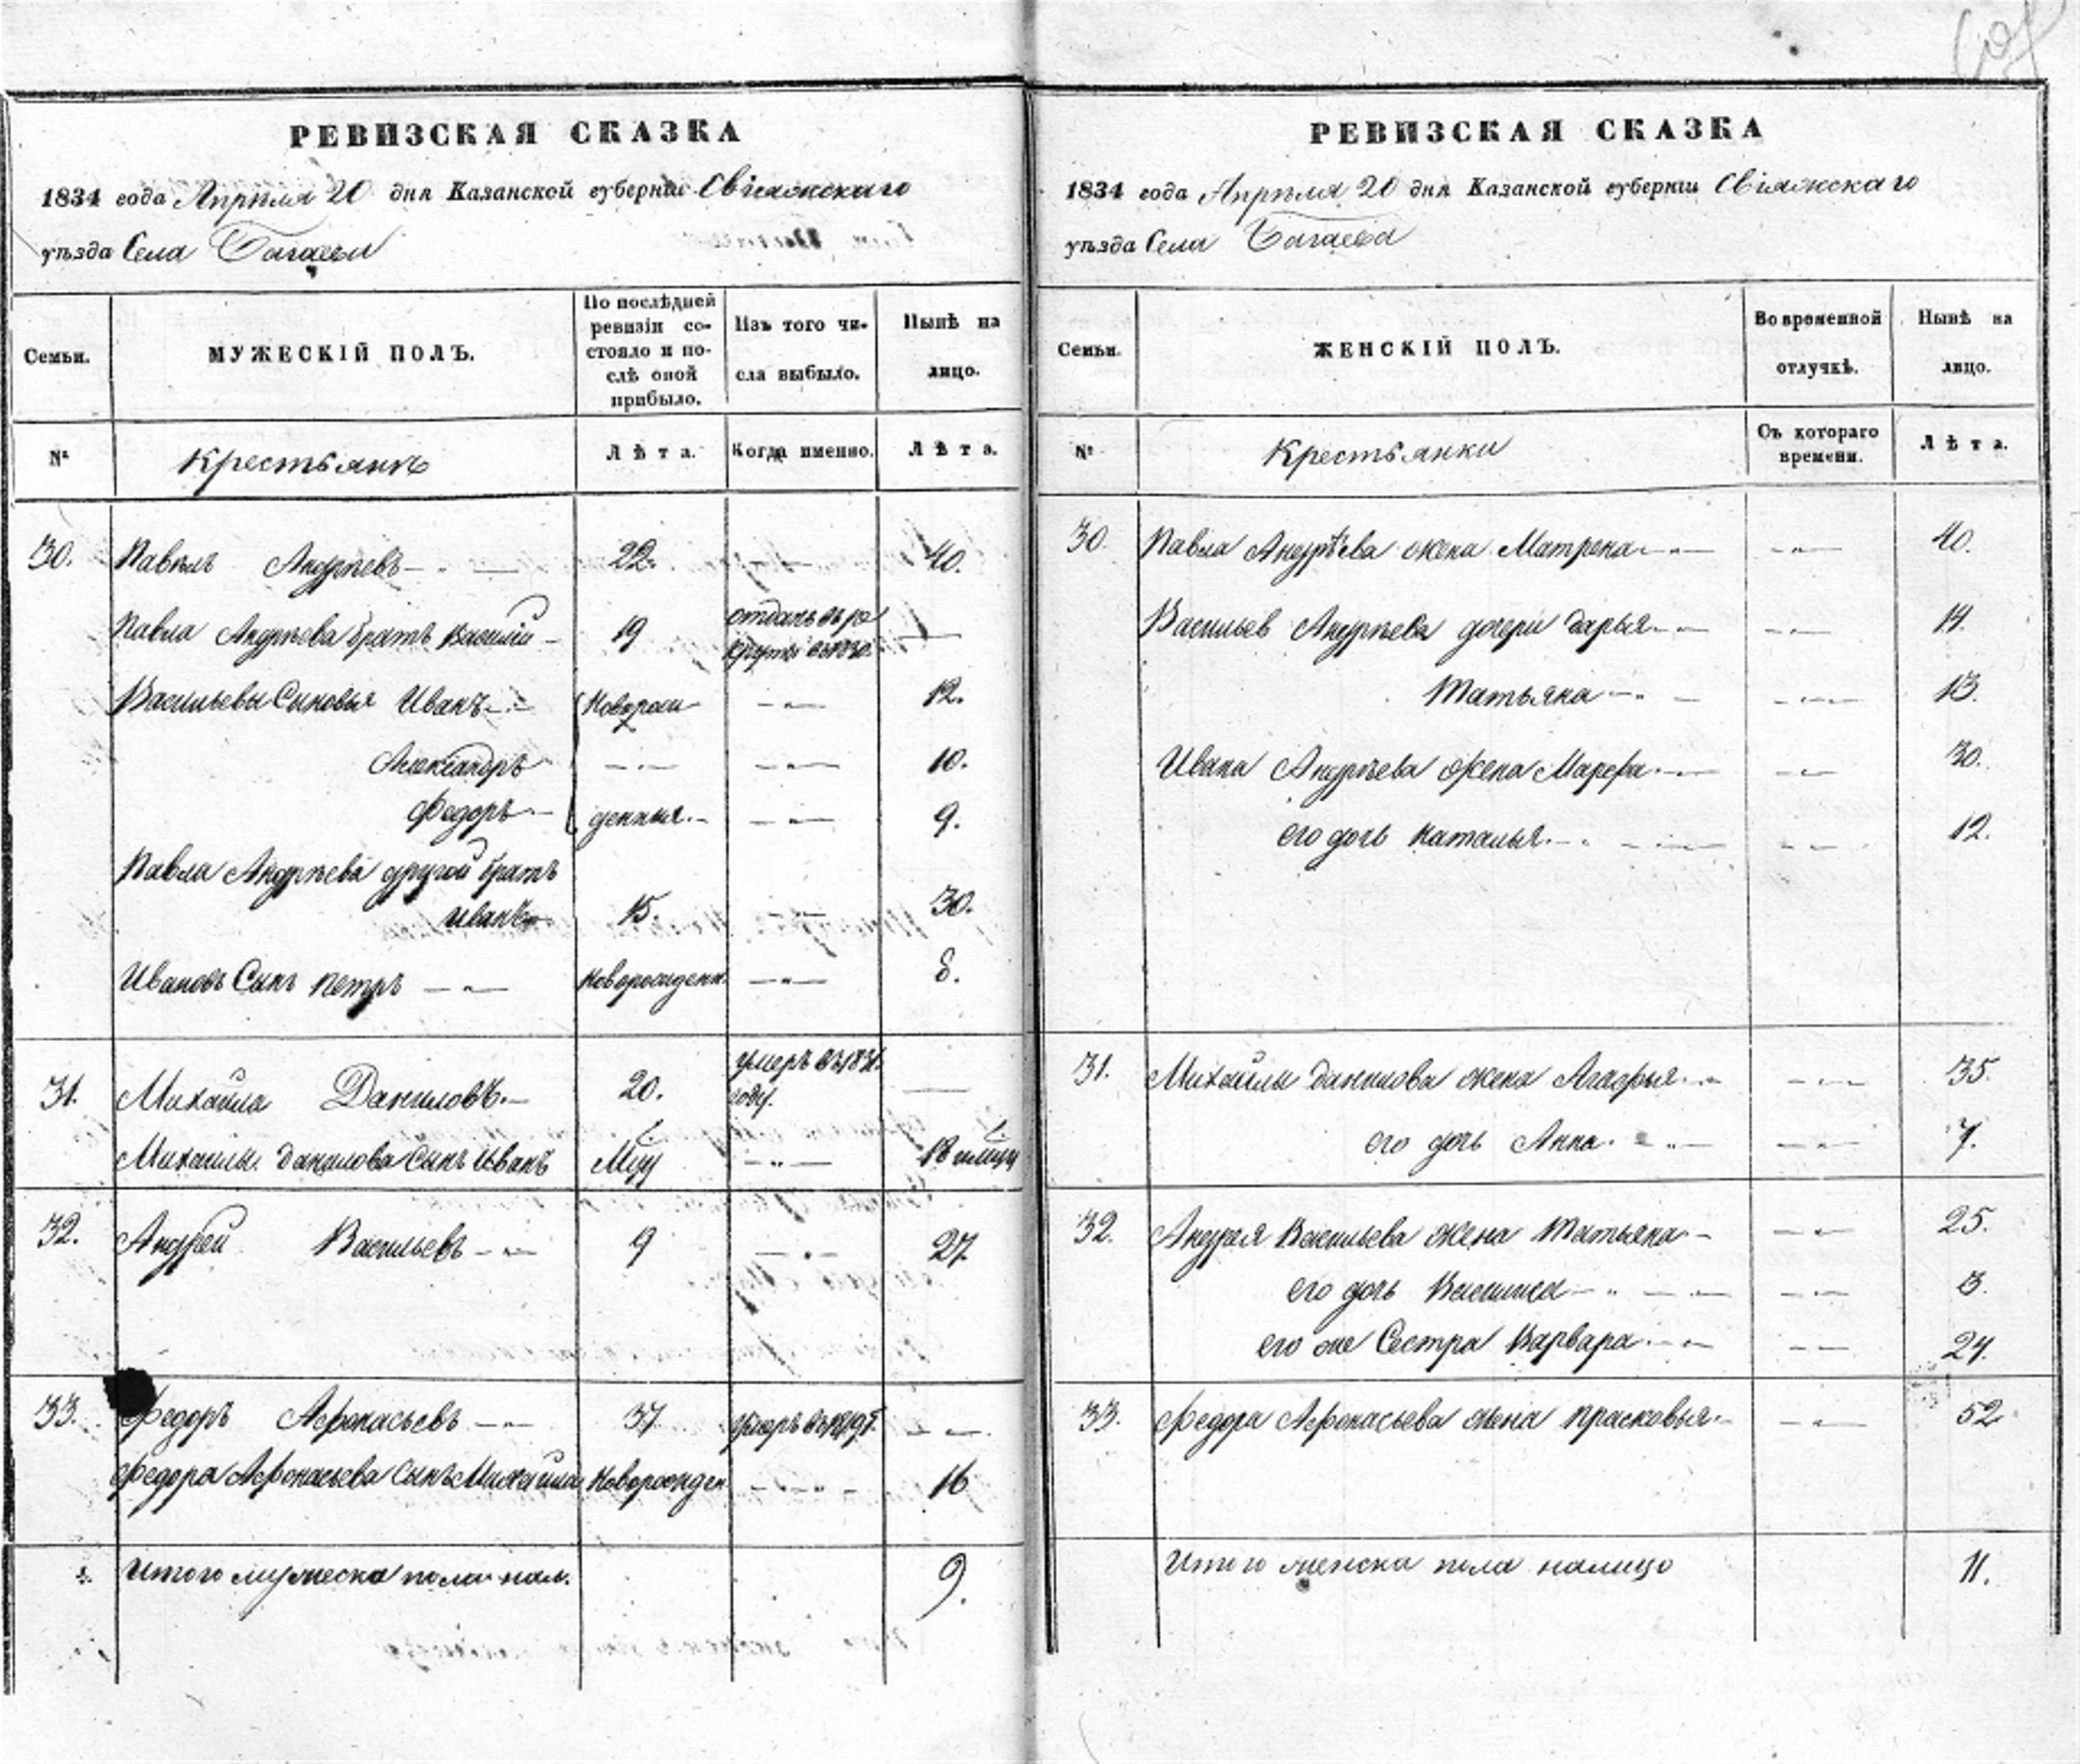 РЕВИЗСКАЯ СКАЗКА
1834 года Апрѣля 20 дня Казанской губерніи Свіяжскаго
уѣзда Села Багаева
Семьи.
МУЖЕСКІЙ ПОЛЪ.
По послѣдней ревизіи состояло и послѣ оной прибыло.
Изъ того числа выбыло.
Нынѣ на лицо.
№
Крестьянъ
Лѣта.
Когда именно.
Лѣта.
30. Павелъ Андрѣевъ 22. 40.
Павла Андрѣева братъ Василій 19 отданъ въ рекруты
Васильевы Сыновья Иванъ Новорож 12.
Александръ 10.
Федоръ денныя. 9.
Павла Андрѣева другой братъ
Иванъ 15. 30.
Ивановъ Сынъ Петръ новорожден. 8.
31. Михайла Даниловъ. 20. умеръ въ году.
Михайлы Данилова Сынъ Иванъ
32. Андрей Васильевъ 9 27.
33. Федоръ Афонасьевъ 37. умеръ
Федора Афонасьева Сынъ Михайла Новорожден 16
Итого мужеска пола нал. 9.
РЕВИЗСКАЯ СКАЗКА
1834 года Апрѣля 20 дня Казанской губерніи Свіяжскаго
уѣзда Села Багаева
Семьи.
ЖЕНСКІЙ ПОЛЪ.
Во временной отлучкѣ.
Нынѣ на лицо.
№
Крестьянки
Съ котораго времени.
Лѣта.
30. Павла Андрѣева жена Матрена 40.
Васильев Андрѣева дочери Дарья 14.
Татьяна 13.
Ивана Андрѣева жена Марфа 30.
его дочь Наталья 12.
31. Михайлы Данилова жена Агафья 35.
его дочь Анна 7.
32. Андрея Васильева жена Татьяна 25.
его дочь 3.
его же Сестра Варвара 24.
33. Федора Афонасьева жена Прасковья 52
Итого женска пола налицо 11.